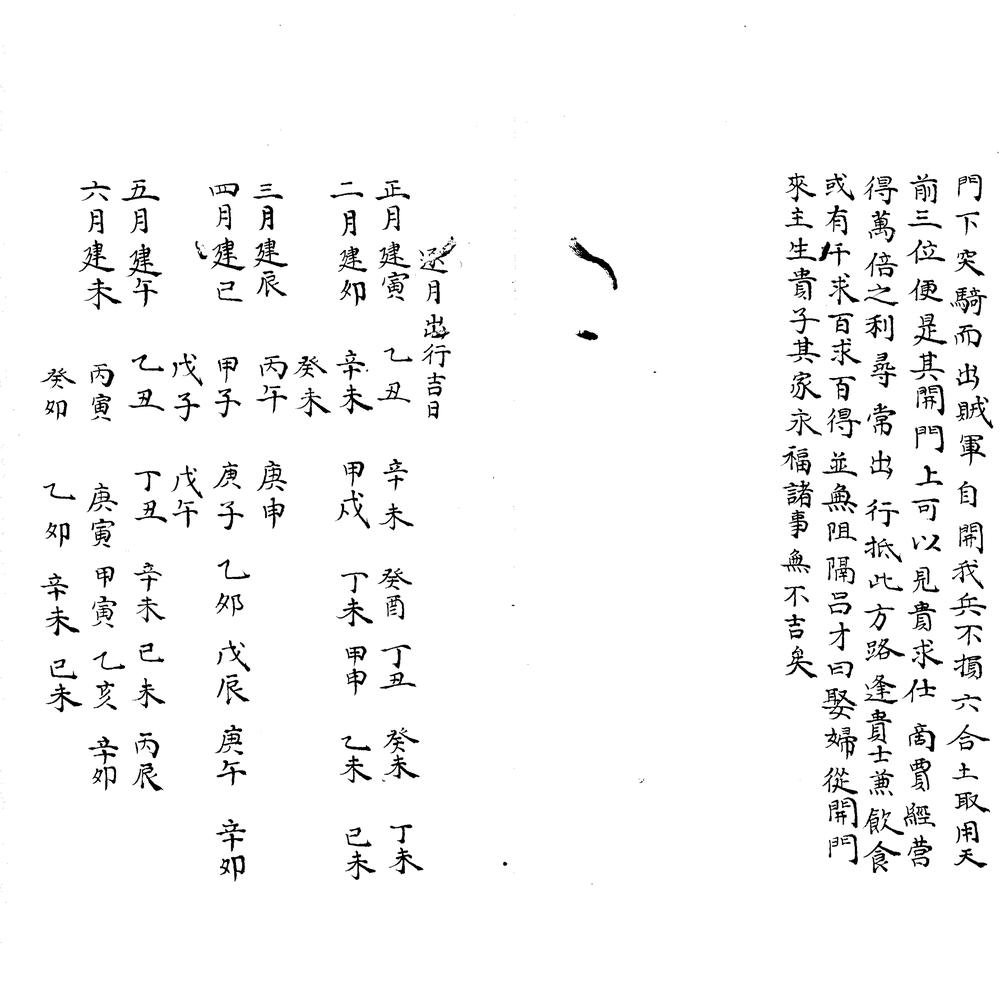 門下突騎而出賊軍自開我兵不損六合土取用天
前三位便是其開門上可以見貴求仕商賈經營
得萬倍之利尋常出行抵此方路逢貴士兼飲食
或有仟求百求百得並無阻隔呂才曰娶婦從開門
來主生貴子其家永福諸事無不吉矣
逐月出行吉日
正月建寅 乙丑 辛未 癸酉 丁丑 癸未 丁未
二月建卯 辛未 甲戍 丁未 甲申 乙未 己未
癸未
三月建辰 丙午 庚申
四月建巳 甲子 庚子 乙卯 戊辰 庚午 辛卯
戊子 戊午
五月建午 乙丑 丁丑 辛未 己未 丙辰
六月建未 丙寅 庚寅 甲寅 乙亥 辛卯
癸卯 乙卯 辛未 己未